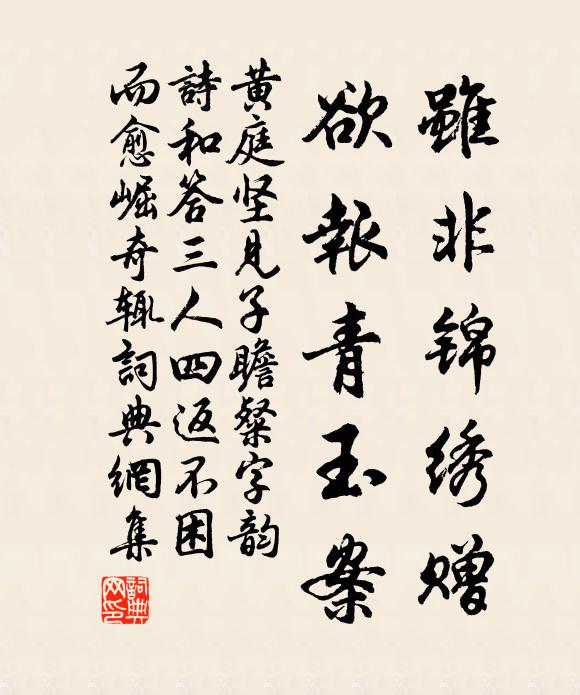 雖非锦绣赠
欲報青玉案
黄庭坚見子瞻粲字韵
詩和答三人四返不困
而愈崛奇辄詞典網集
詞典
网印